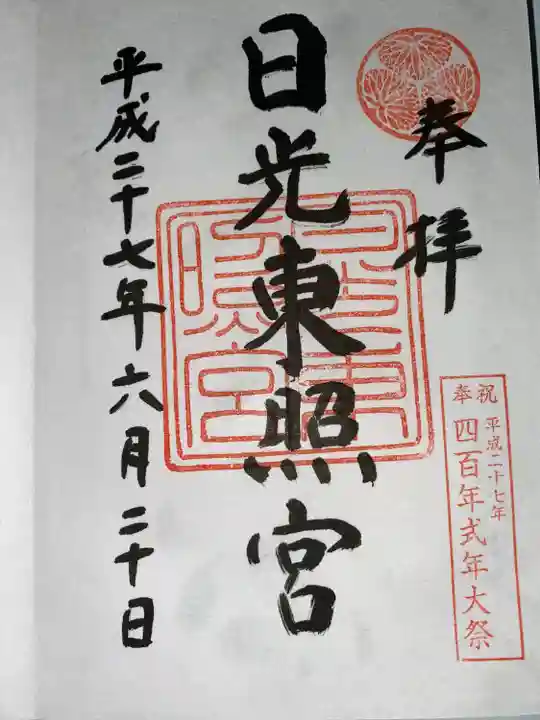 奉拝
日光東照宮
平成二十七年六月二十日
日光東照宮
奉祝
平成二十七年
四百年式年大祭